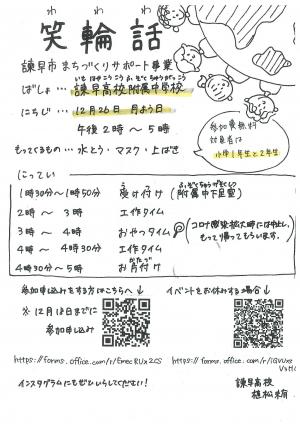 わ わ わ
笑輪話
諫早市 まちづくりサポート事業
いさはやこうこうふぞくちゅうがっこう
ばしょ … 諫早高校附属中学校
にちじ … 12月26日 月よう日
午後2時～5時
もってくるもの … 水とう・マスク・上ばき
参加費無料
対象者は
小学1年生と2年生
にってい
1時30分～1時50分 受け付け (附属中下足室)
2時～3時 工作タイム
3時～4時 おやつタイム (コロナ感染拡大時には中止し、もって帰ってもらいます。)
4時～4時30分 工作タイム
かたづ
4時30分～5時 お片付け
参加申し込みをする方はこちらへ
※12月18日までに
参加申し込み
イベントをお休みする場合
https://forms.office.com/r/EmecRUx2CS
インスタグラムにもぜひいらしてください!
諫早高校
植松